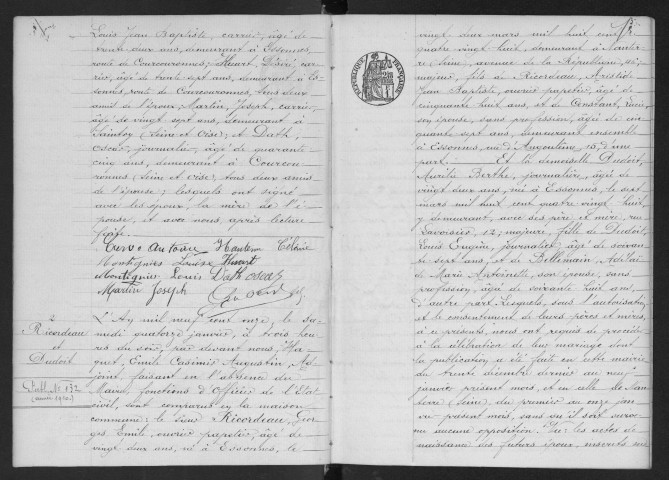 Louis Jean Baptiste, carrier, âgé de
trente deux ans, demeurant à Essonnes,
route de Courcouronnes; Huvert, Désiré car-
rier, âgé de trente sept ans, demeurant à Es-
sonnes, route de Courcouronnes, tous deux
amis de l'époux; Martin, Joseph, carrier,
âgé de vingt sept ans, demeurant à
Saintry (Seine et Oise); et Dath,
Oscar, journalier, âgé de quarante
cinq ans, demeurant à Courcou-
ronnes, (Seine et Oise), tous deux amis
de l'épouse; lesquels ont signé
avec les époux, la mère de l'é-
pouse, et avec nous, après lecture
faite.
Montignies Louise Huvert
Montignies Louis Dath Oscar
Martin Joseph
2
Ricordeau
et
Dudoit
L'An mil neuf cent onze, le sa-
medi quatorze janvier, à trois heu-
res du soir, par devant nous,
quet, Emile Casimir Augustin, Ad-
joint, faisant en l'absence du
Maire, fonctions d'Officier de l'Etat
civil, sont comparus en la maison
commune: le sieur Ricordeau, Geor-
ges, Emile, ouvrier papetier, âgé de
vingt deux ans, né à Essonnes, le
RÉPUBLIQUE FRANÇAISE
vingt deux mars mil huit cent
quatre vingt huit, demeurant à Nanter-
re (Seine), avenue de la République,
majeur, fils de Ricordeau, Aristide
Jean Baptiste, ouvrier papetier, âgé de
cinquante huit ans, et de Constant,
son épouse, sans profession, âgée de cin-
quante sept ans, demeurant ensemble
à Essonnes, rue d'Angoulême 15, d'une
part. Et la demoiselle Dudoit,
Aurélie Berthe, journalière, âgée de
vingt deux ans, née à Essonnes, le sept
mars mil huit cent quatre vingt huit,
y demeurant, avec ses père et mère, rue
Lavoisier, 12; majeure, fille de Dudoit,
Louis Eugène, journalier, âgé de soixan-
te sept ans, et de Bellemain, Adélaï-
de Marie Antoinette, son épouse, sans
profession, âgée de soixante huit ans,
d'autre part. Lesquels, sous l'autorisation
et le consentement de leurs pères et mères,
à ce présents, nous ont requis de procéder
à la célébration de leur mariage dont
la publication a été faite en cette mairie
du trente décembre dernier au neuf
janvier présent mois, et en celle de Nan-
terre (Seine) du premier au onze jan-
vier présent mois, sans qu'il soit surve-
nu aucune opposition. Vu: les actes de
naissance des futurs époux, inscrits sur